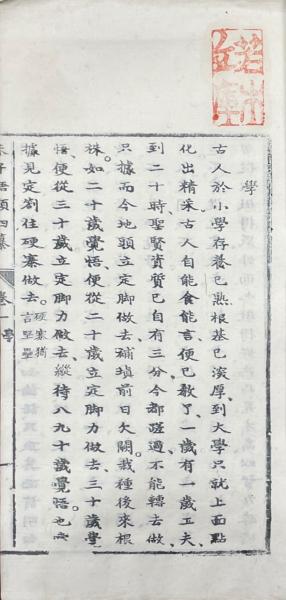 學
古人於小學存養已熟根基已深厚到大學只就上面點
化出精采古人自能食能言便已教了一歲有一歲工夫
到二十時聖賢資質已自有三分今都蹉過不能轉去做
只據而今地頭立定脚做去補填前日欠闕栽種後來根
株如二十歲覺悟便從二十歲立定脚力做去三十歲覺
悟便從三十歲立定脚力做去縱待八九十歲覺悟也當
據見定劄住硬寨做去硬寨猶言堅壘
朱子語類四纂 卷一 學